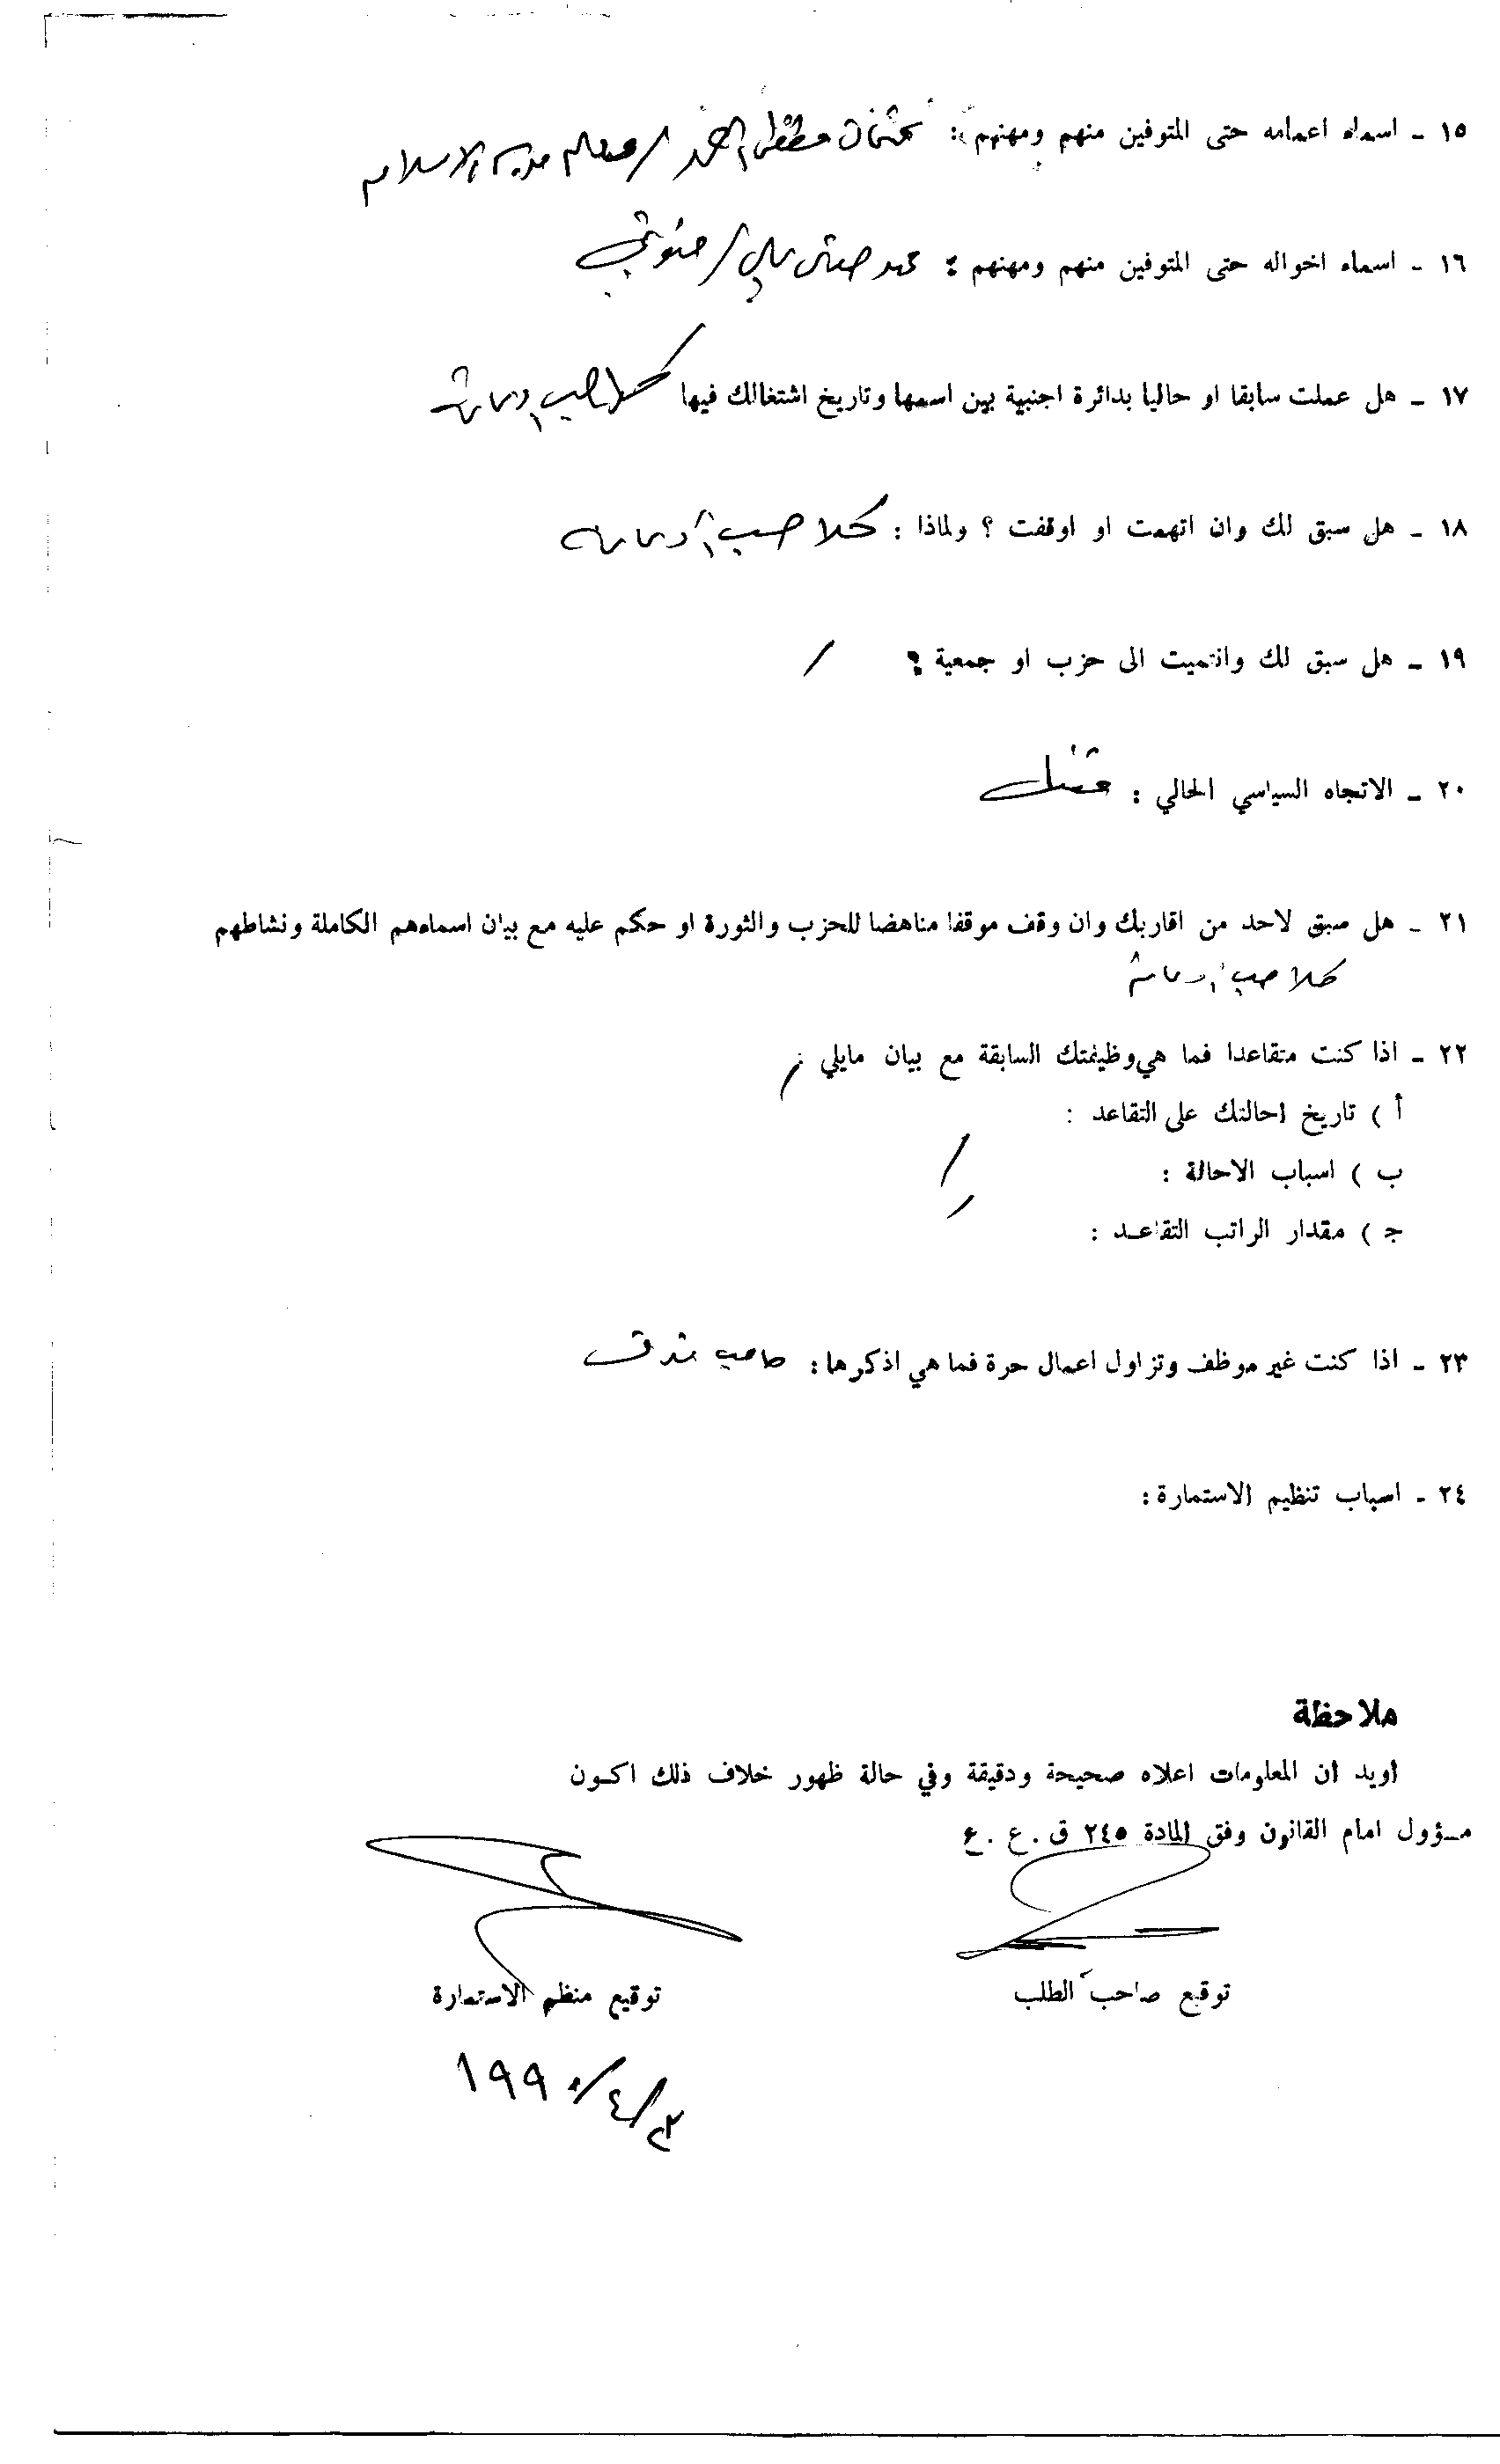 ١٥ - اسماء اعمامه حتى المتوفين منهم ومهنهم : عثمان مصطفى احمد / معلم مدرسة الاسلام
١٦ - اسماء اخواله حتى المتوفين منهم ومهنهم : محمد علي / متوفي
١٧ - هل عملت سابقا او حاليا بدائرة اجنبية بين اسمها وتاريخ اشتغالك فيها كلا حسب ادعائه
١٨ - هل سبق لك وان اتهمت او اوقفت ؟ ولماذا : كلا حسب ادعائه
١٩ - هل سبق لك وانتميت الى حزب او جمعية ؟ /
٢٠ - الاتجاه السياسي الحالي : مستقل
٢١ - هل سبق لاحد من اقاربك وان وقف موقفا مناهضا للحزب والثورة او حكم عليه مع بيان اسماءهم الكاملة ونشاطهم
كلا حسب ادعائه
٢٢ - اذا كنت متقاعدا فما هي وظيفتك السابقة مع بيان مايلي : /
أ ) تاريخ احالتك على التقاعد :
ب ) اسباب الاحالة : /
جـ ) مقدار الراتب التقاعـد : /
٢٣ - اذا كنت غير موظف وتزاول اعمال حرة فما هي اذكرها : صاحب فندق
٢٤ - اسباب تنظيم الاستمارة :
ملاحظة
أويد أن المعلومات اعلاه صحيحة ودقيقة وفي حالة ظهور خلاف ذلك اكـون
مـؤول امام القانون وفق المادة ٢٤٥ ق . ع . ع
توقيع صاحب الطلب توقيع منظم الاستمارة
٣/٤/١٩٩٠